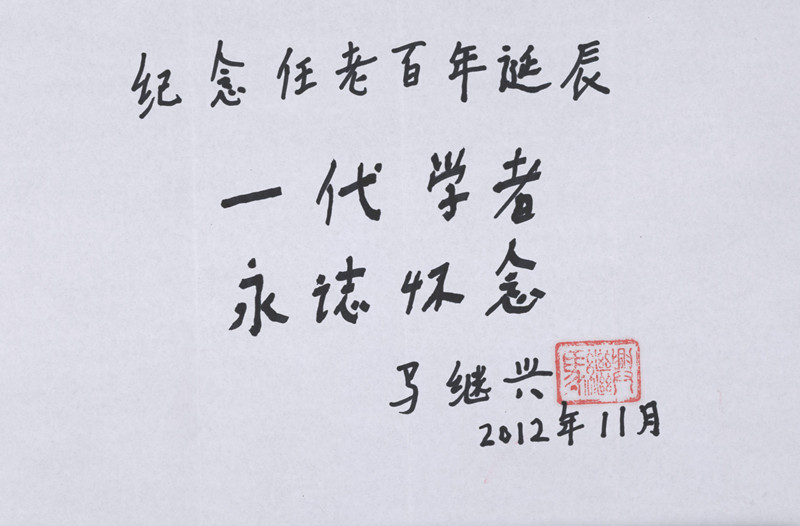 纪念任老百年诞辰
一代学者
永誌怀念
马继兴
馬繼興
2012年11月